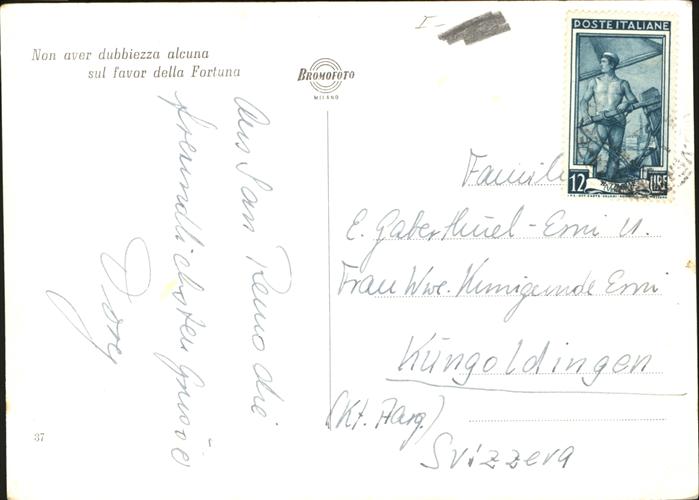 Non aver dubbiezza alcuna
sul favor della Fortuna
BROMOFOTO
MILANO
I-
POSTE ITALIANE
12 LIRE
Aus San Remo die
freundlichsten Grüsse
Dorey
Familie
E. Gaberthüel-Erni u.
Frau Wwe. Kunigunde Erni
Küngoldingen
(Kt. Aarg.)
Svizzera
37